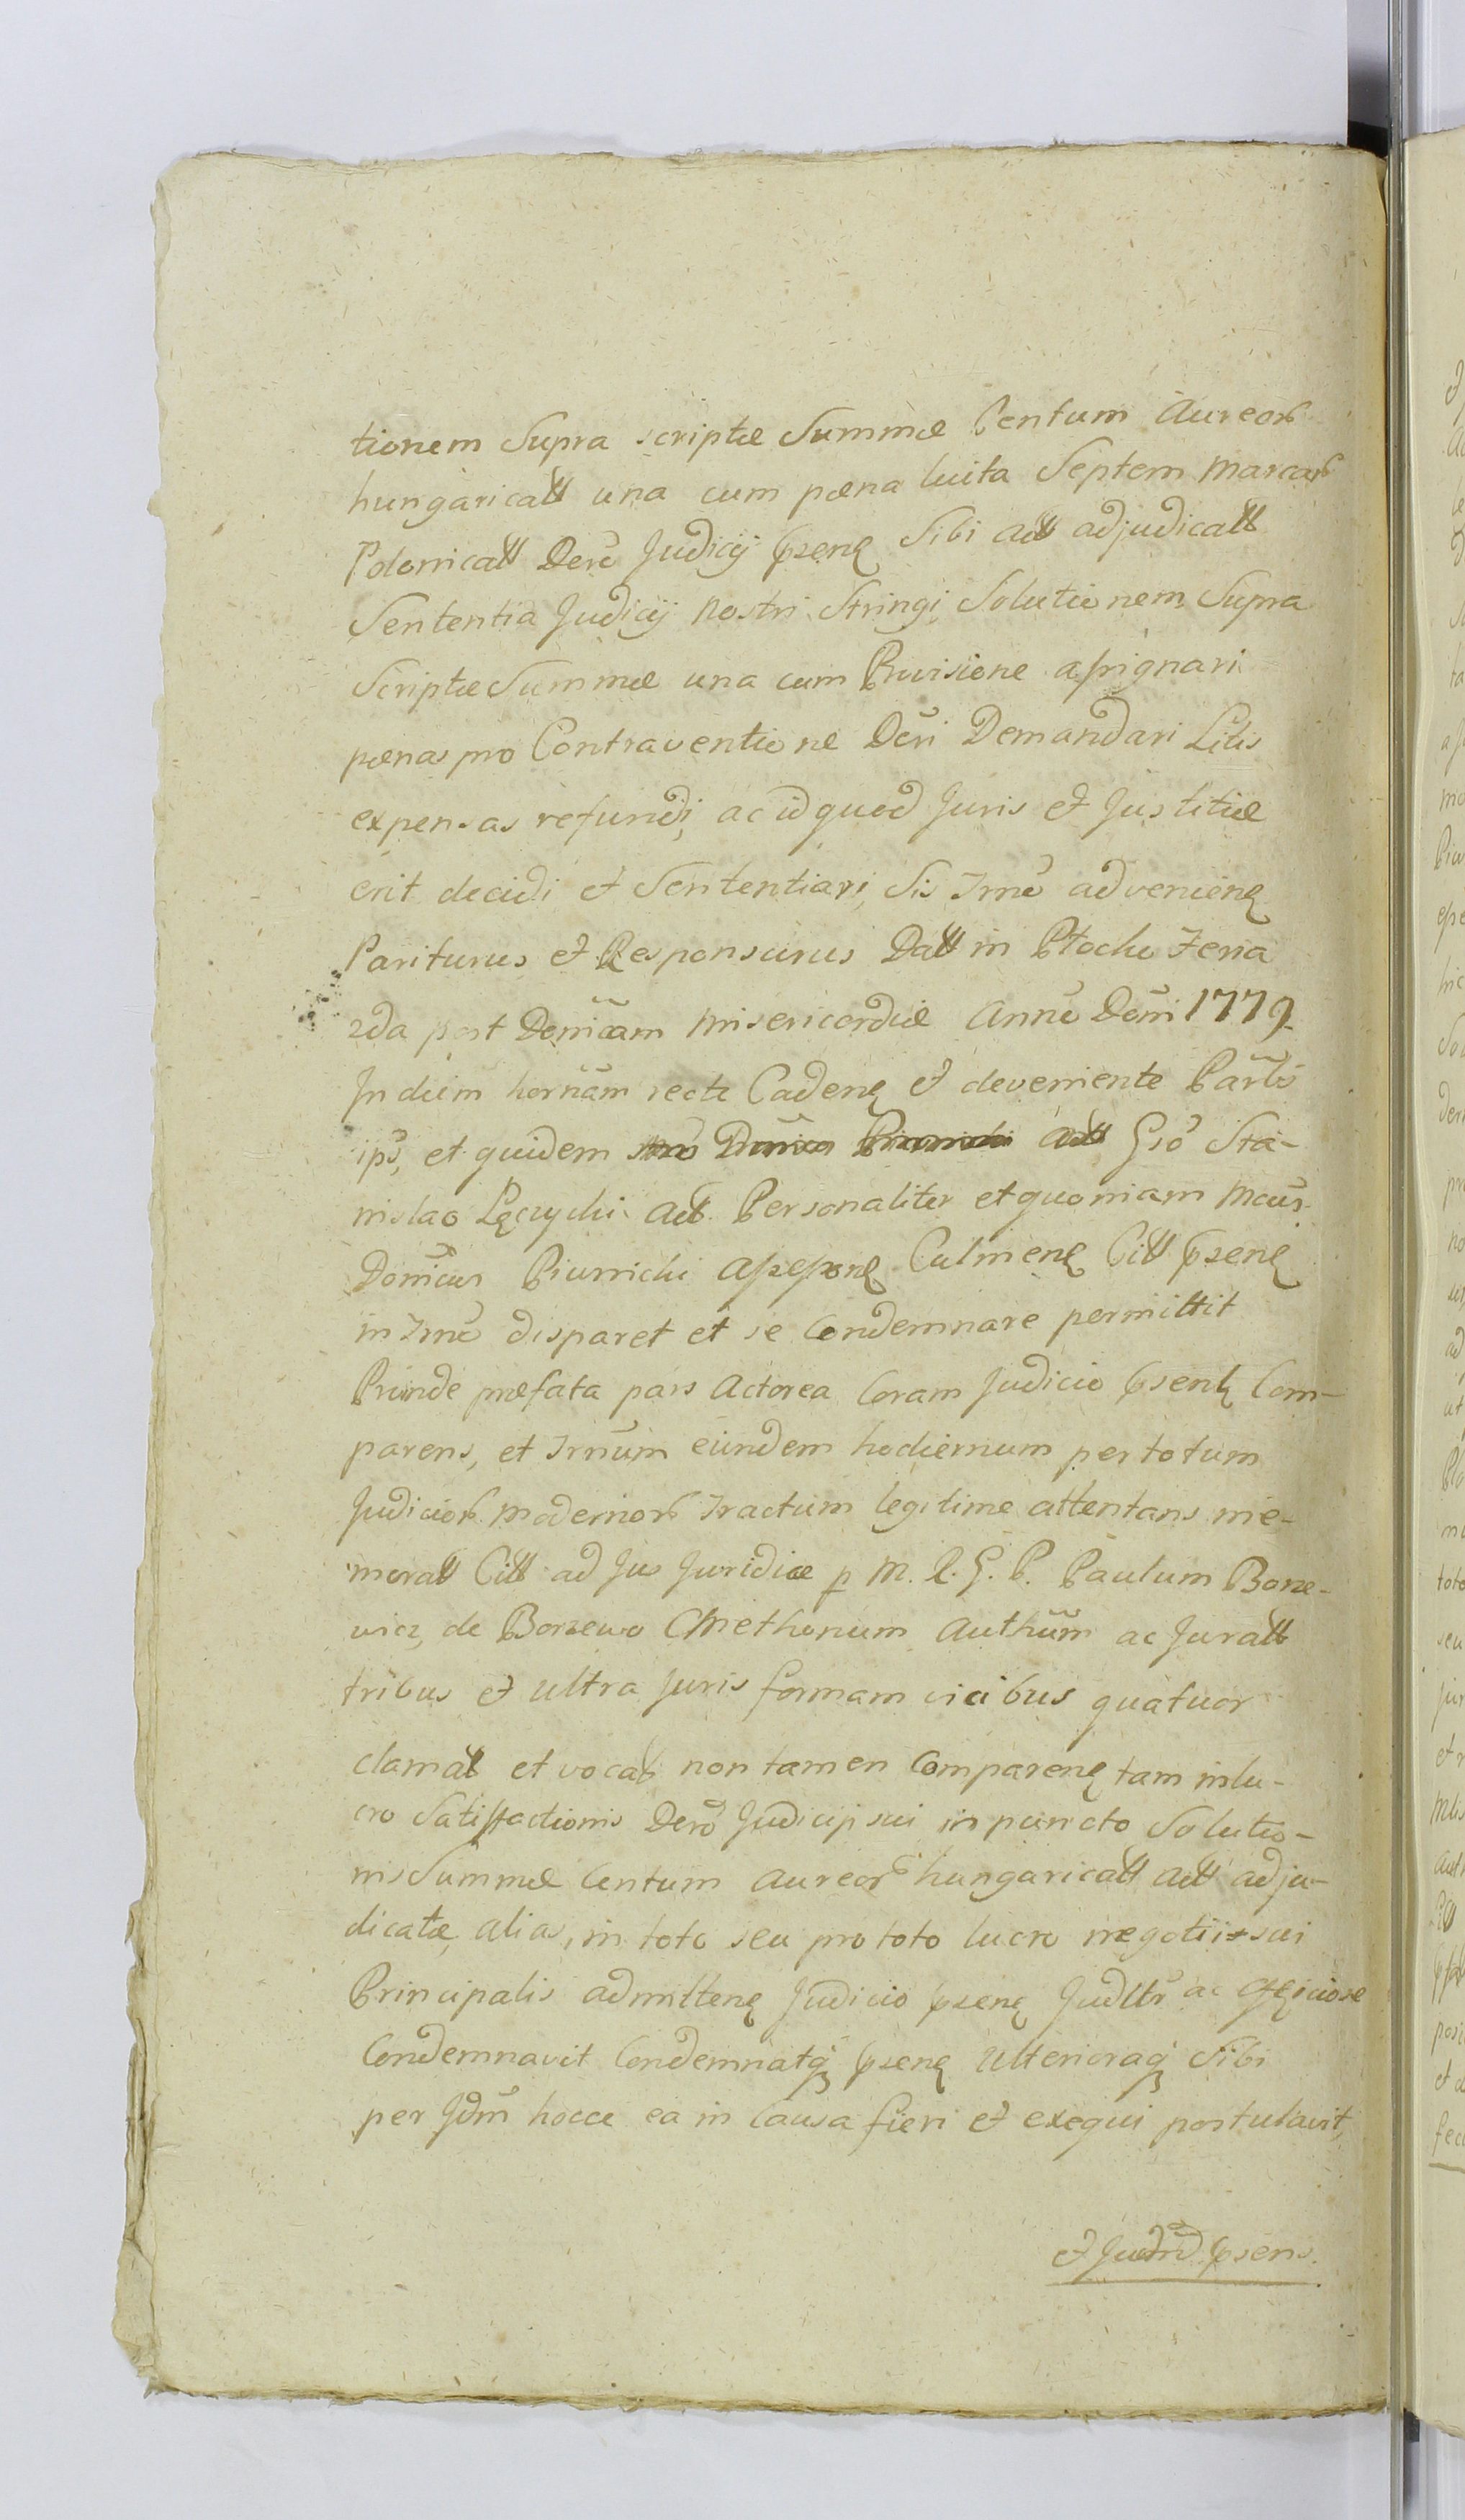 tionem Supra scriptæ Summæ Centum Aureor
hungaricall una cum pæna luita Septem Marcar
Polonicall Decō Judicij psenę Sibi Act adjudicall
Sententia Judicij nostri Stringi Solutionem Supra
Scriptæ Summæ una cum Provisione assignari
pænas pro Contraventione Dcri Demandari Litis
expensas refundi, ac id quod Juris et Justitiæ
erit decidi et Sententiari, Sis Trnō advenienę
Pariturus et Responsurus Datt in Płocko Feria
2da post Domcam Misericordiæ Anno Dōni 1779
In diem hornām recte Cadenę et deveniente Partb
ips, et quidem Act Gsō Sta-
nislao Łęczycki Act Personaliter et quoniam Mcus
Domicus Piwnicki Assessore Culmenę Citt psenę
in Trnō disparet et se Condemnare permittit
Proinde præfata pars Actorea Coram Judicio psentę Com-
parens, et Trnūm eundem hodiernum per totum
Judicior modernor tractum legitime attentans me-
morat Citt ad Jus Juridice p M. R. G. P. Paulum Borze-
wicz, de Borzewo CMethonum Authūm ac Juratt
tribus et ultra juris formam vicibus quatuor
clamat et vocat non tamen Comparenę tam in lu-
cro Satisfactionis Decrō Judicij sui in puncto Solutio-
nis Summæ Centum aureor hungaricall Act adju-
dicatæ, alias, in toto seu pro toto lucro negotii sui
Principalis admittenę Judicio psenę Judlr ac Officiose
Condemnavit Condemnatq psenę Ulterioraq Sibi
per Jdm hocce ea in Causa fieri et exequi postulavit,
et Judm psens.